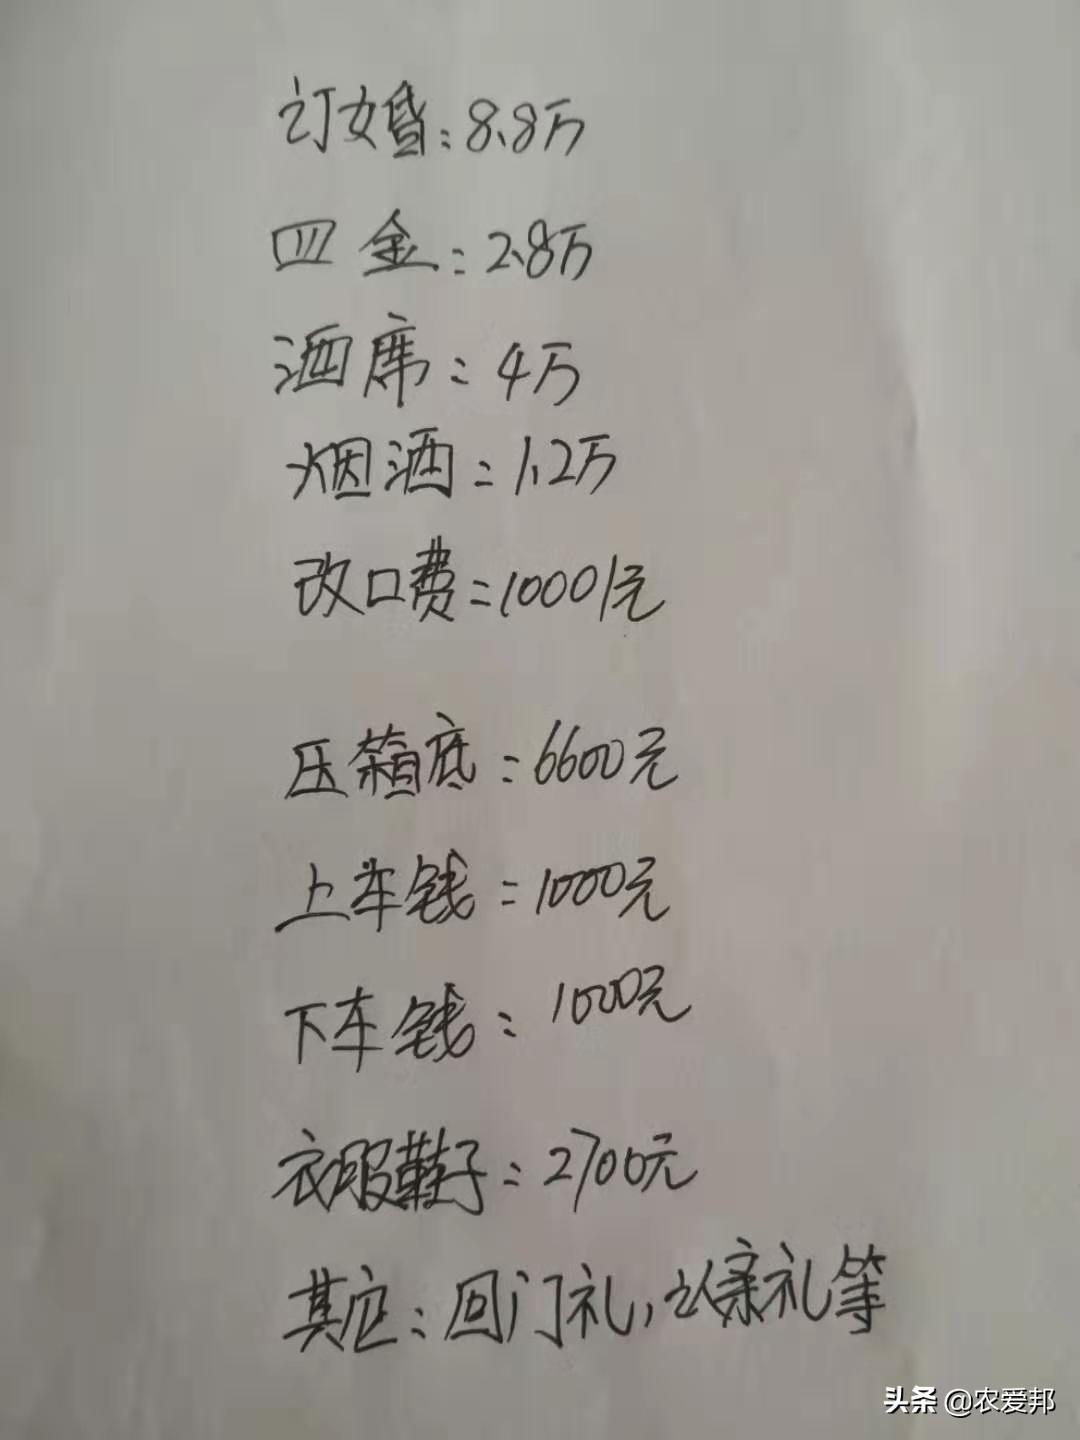 订婚:8.8万
四金:2.8万
酒席:4万
烟酒:1.2万
改口费:10001元
压箱底:6600元
上车钱:1000元
下车钱:1000元
衣服鞋子:2700元
其它:回门礼,认亲礼等
头条 @农爱邦